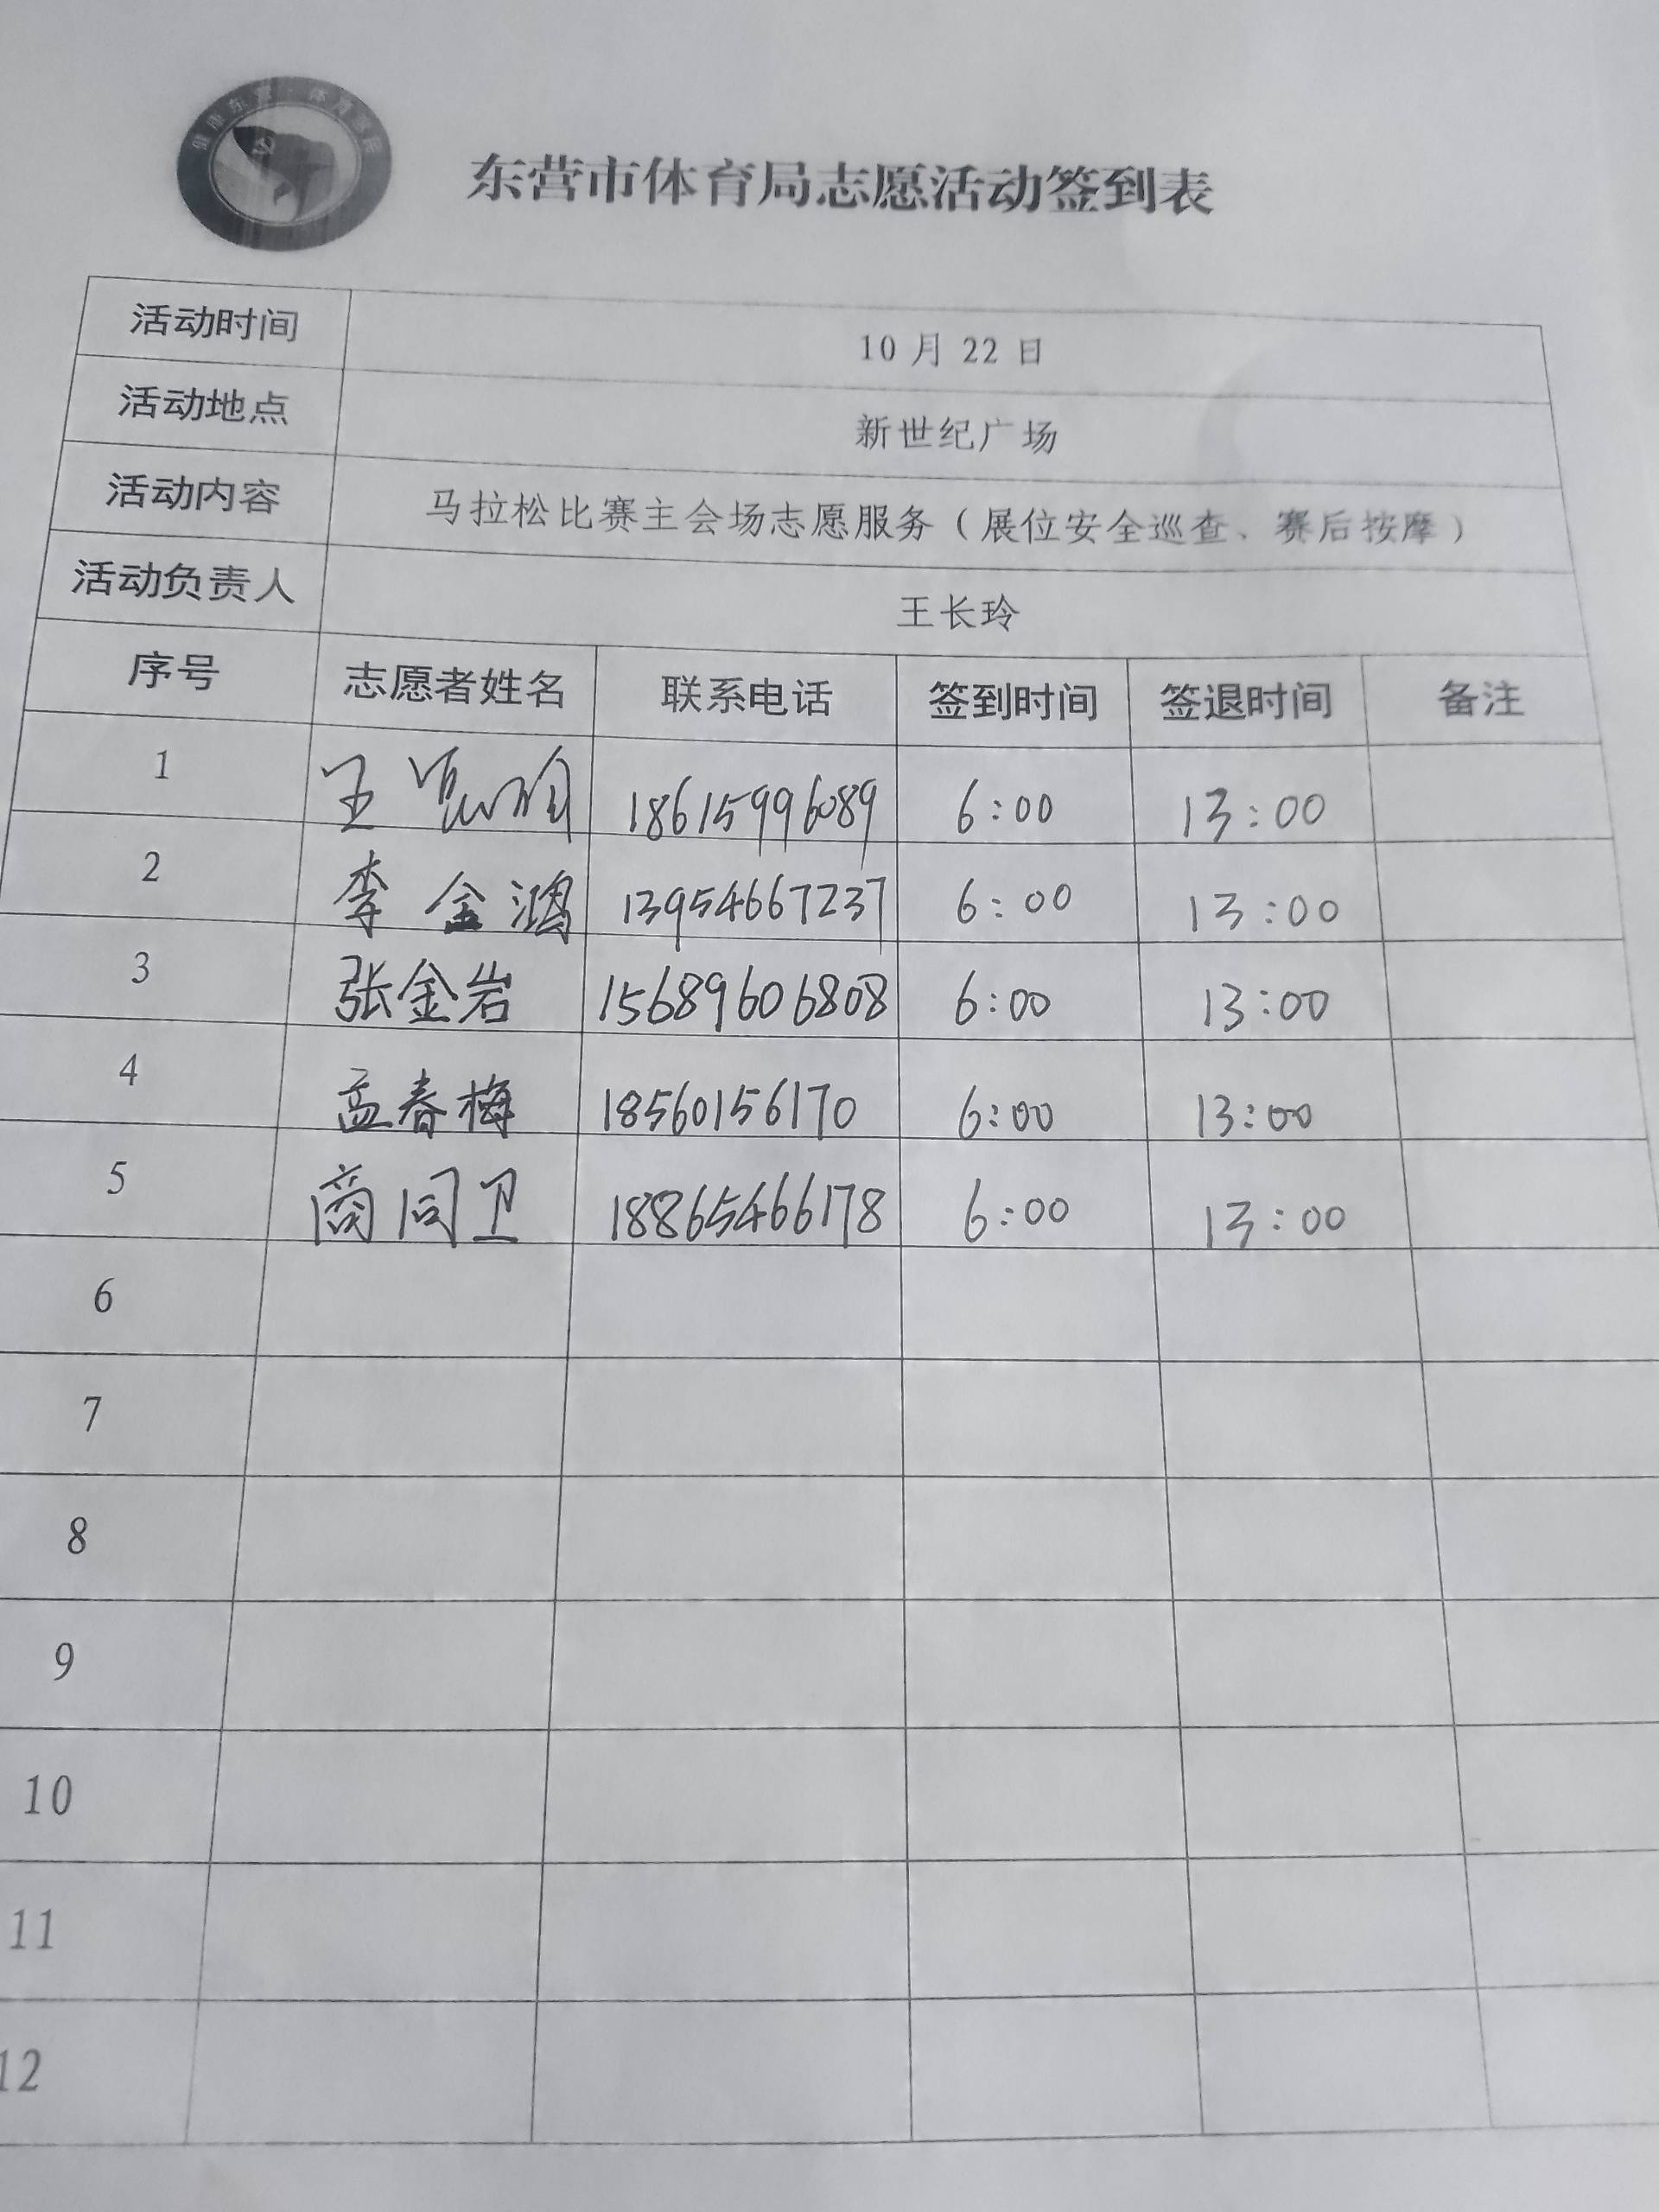 东营市体育局志愿活动签到表
活动时间 10月22日
活动地点 新世纪广场
活动内容 马拉松比赛主会场志愿服务（展位安全巡查、赛后按摩）
活动负责人 王长玲
序号 志愿者姓名 联系电话 签到时间 签退时间 备注
1 王 18615996089 6:00 13:00
2 李金鸿 13954667237 6:00 13:00
3 张金岩 15689606808 6:00 13:00
4 孟春梅 18560156170 6:00 13:00
5 商同卫 18865466178 6:00 13:00
6
7
8
9
10
11
12